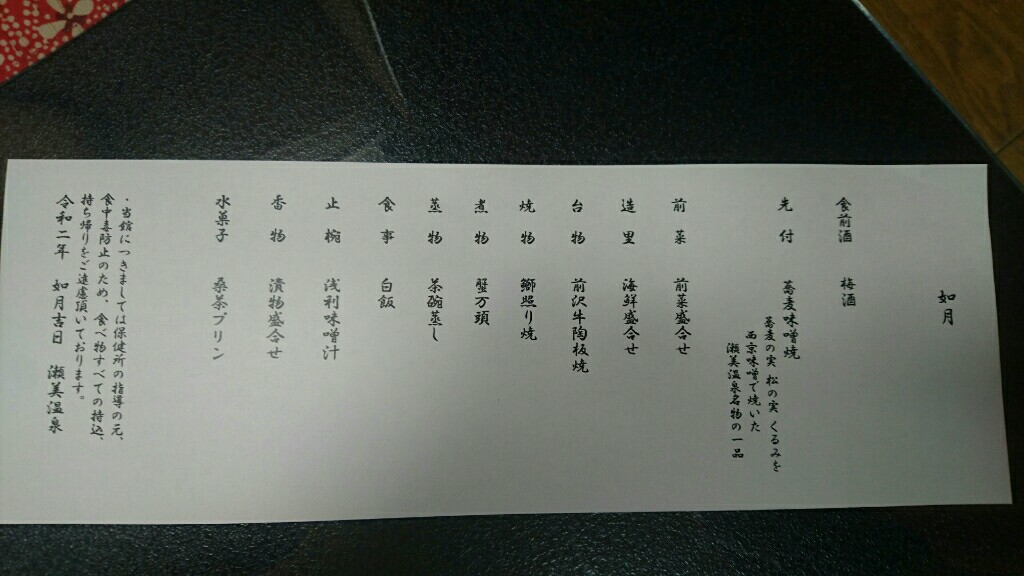 如月
食前酒 梅酒
先付 蕎麦味噌焼
蕎麦の実 松の実 くるみを
西京味噌で焼いた
瀬美温泉名物の一品
前菜 前菜盛合せ
造里 海鮮盛合せ
台物 前沢牛陶板焼
焼物 鰤照り焼
煮物 蟹万頭
蒸物 茶碗蒸し
食事 白飯
止椀 浅利味噌汁
香物 漬物盛合せ
水菓子 桑茶プリン
・当館につきましては保健所の指導の元、
食中毒防止のため、食べ物すべての持込、
持ち帰りをご遠慮頂いております。
令和二年 如月吉日 瀬美温泉